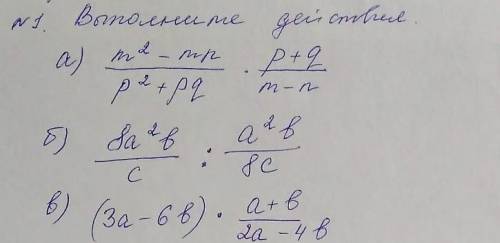 №1. Выполните действия.
а) (m² - mn)/(p² + pq) · (p+q)/(m-n)
б) (8a²b)/c : (a²b)/(8c)
в) (3a-6b) · (a+b)/(2a-4b)